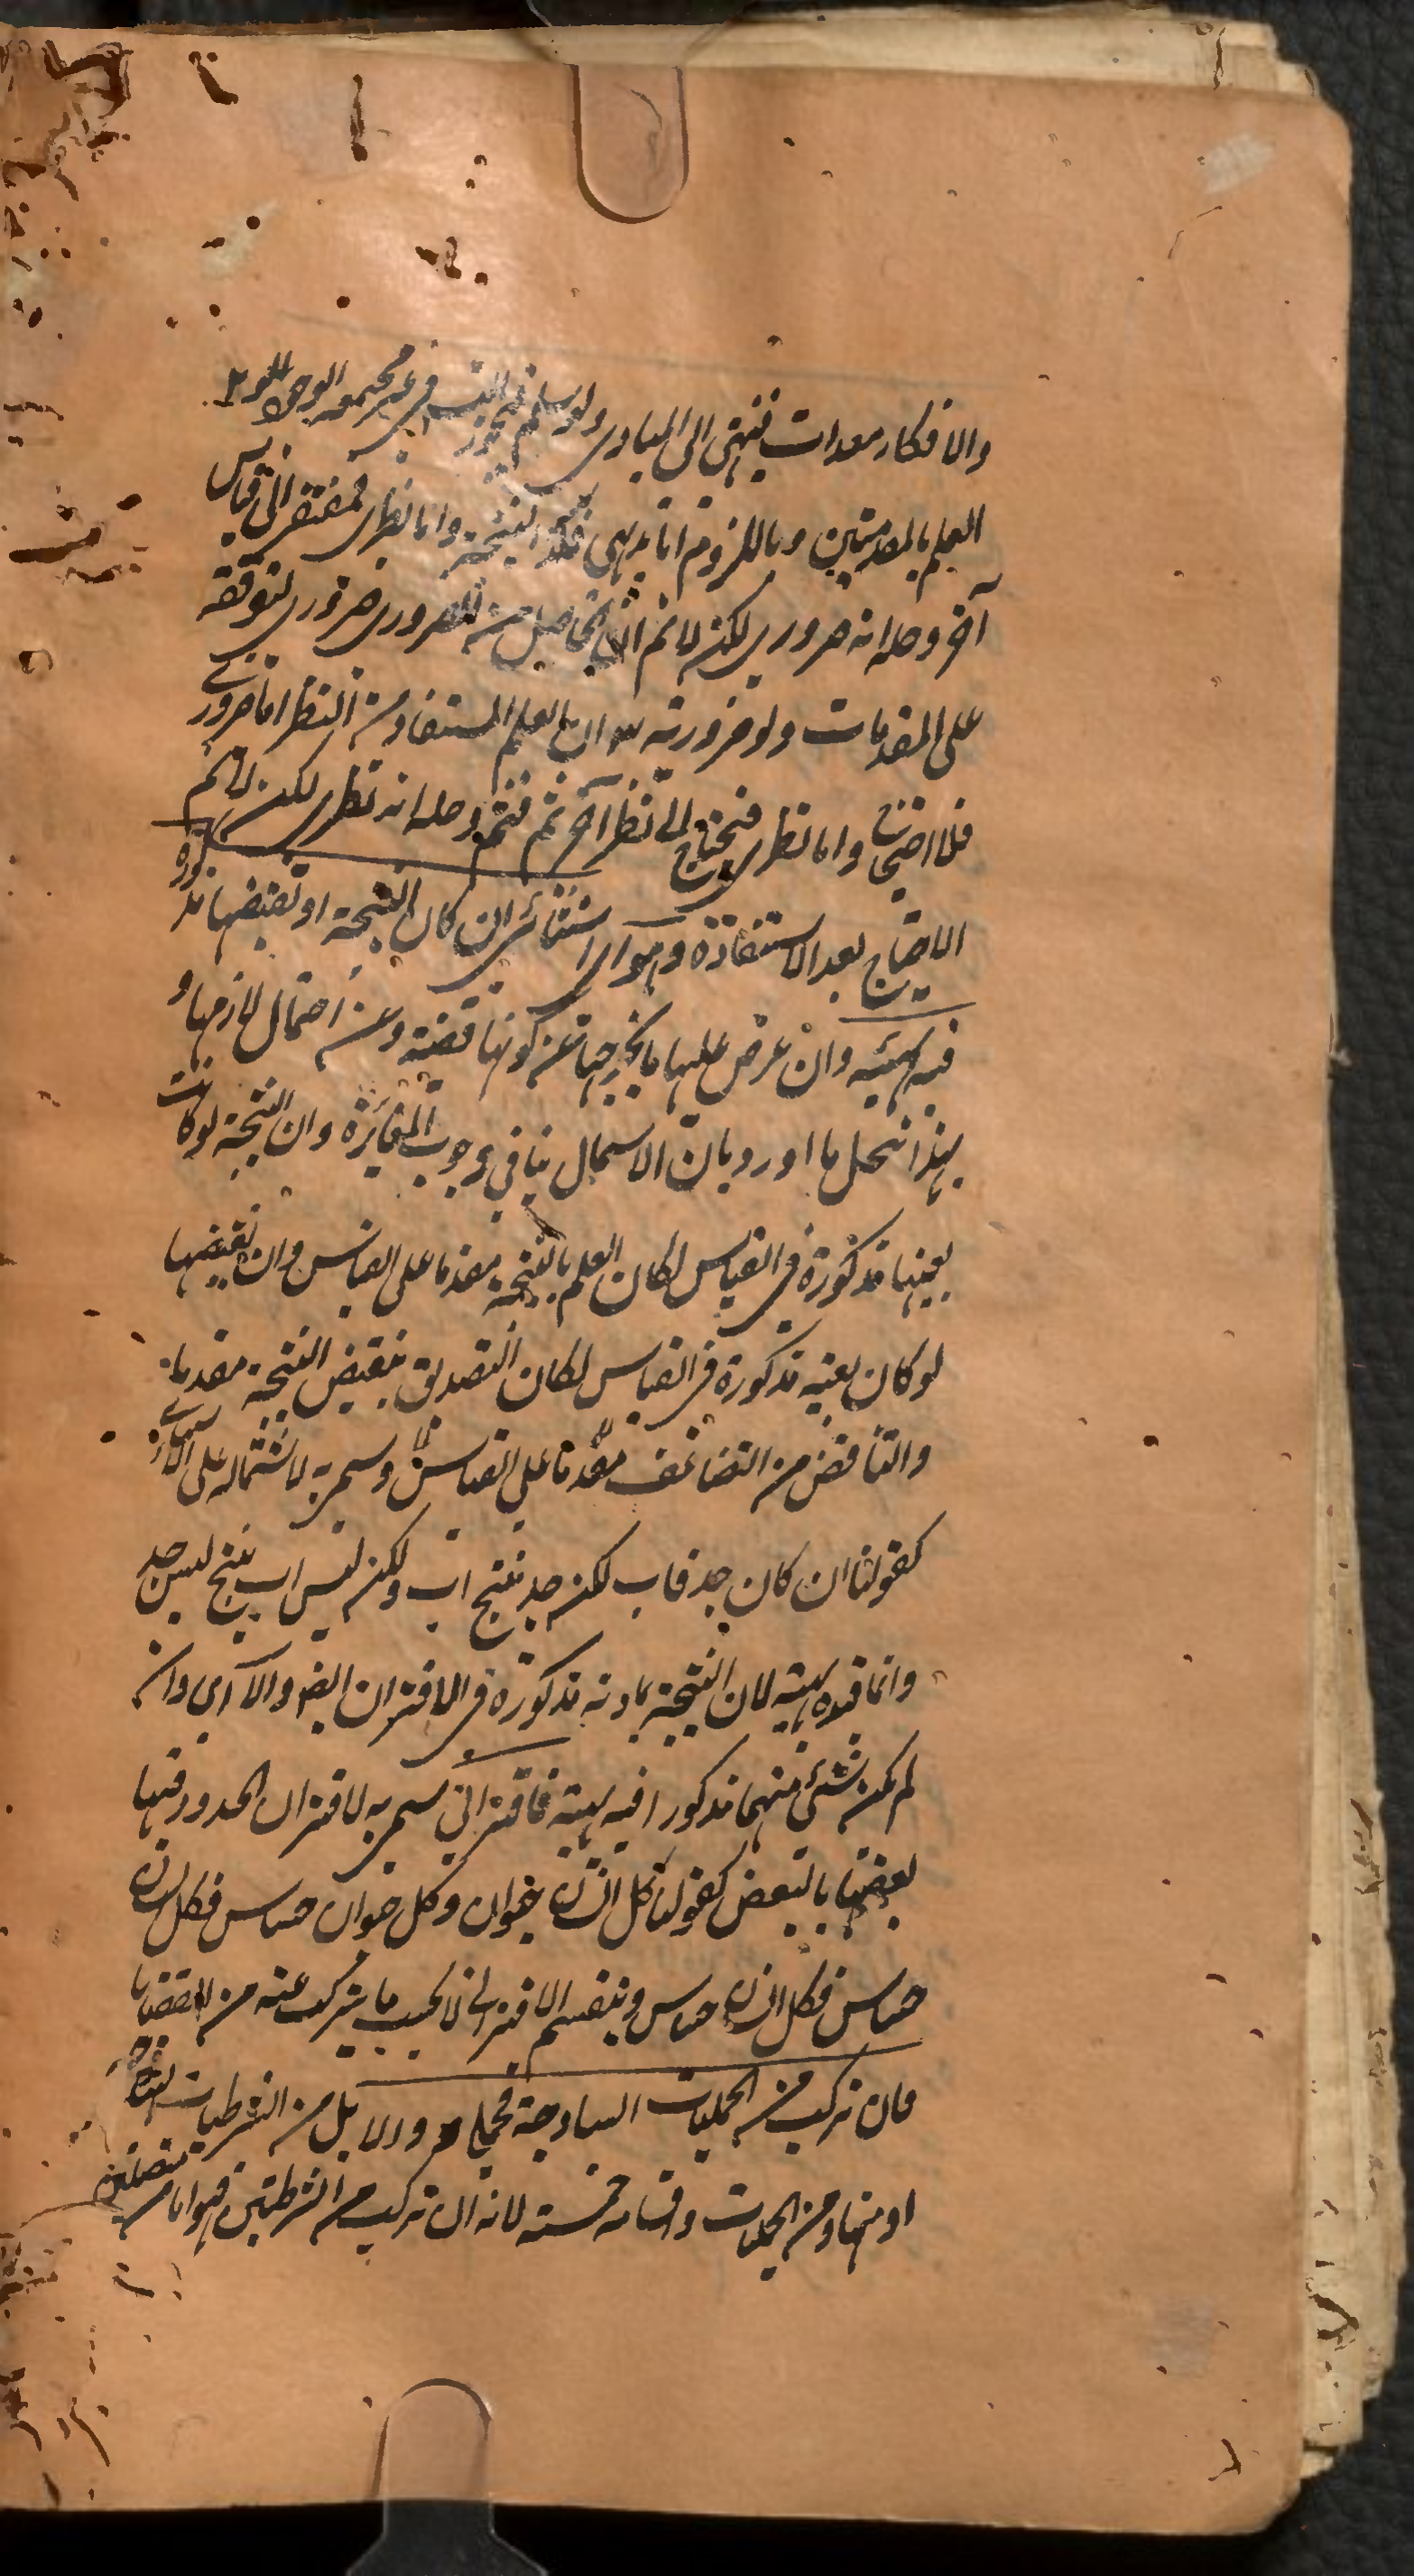 والافكار معدات فينتهي الى المبادي ولو سلم فيجوز التس في غير مجتمعه الوجود
العلم بالمقدمتين وباللزوم اما بديهي فكذا النتيجة واما نظري فمفتقر الى قياس
آخر وحله انه ضروري لكنه لا نم ان الحاصل من الضروري ضروري لتوقفه
على المقدمات ولو ضرورية ان العلم المستفاد من النظر اما ضروري
فلا احتياج واما نظري فيحتاج الى نظر آخر ثم فثم وحله انه نظري لكنه لا نم
الاحتياج بعد الاستفادة وهو استثنائي ان كان النتيجة او نقيضها مذكورة
فيه بهيئته وان عرض عليها ما يخرجها عن كونها قضية وعن احتمال لازمها و
بهذا انحل ما اورد بان الاشتمال ينافي وجوب المغايرة وان النتيجة لو كانت
بعينها مذكورة في القياس لكان العلم بالنتيجة مقدما على القياس وان نقيضها
لو كان بعينه مذكورة في القياس لكان التصديق بنقيض النتيجة مقدما
والتناقض من التضايف مقدما على القياس وسمي به لاشتماله على
كقولنا ان كان جد فاب لكنه جد ينتج اب ولكنه ليس اب ينتج ليس جد
وانما قيده بهيئته لان النتيجة بمادته مذكورة في الاقتران ايضا والا اي وان
لم يكن شئ منهما مذكورا فيه بهيئته فاقتراني سمي به لاقتران الحدود فيها
بعضها بالبعض كقولنا كل انسان حيوان وكل حيوان حساس فكل انسان
حساس فكل انسان حساس وينقسم الاقتراني بحسب ما يتركب عنه من القضايا
فان تركب من الحمليات الساذجة فحملي والا بل من الشرطيات
او منها ومن الحمليات واقسامه خمسة لانه ان تركب من الشرطيتين فهو اما من متصلتين